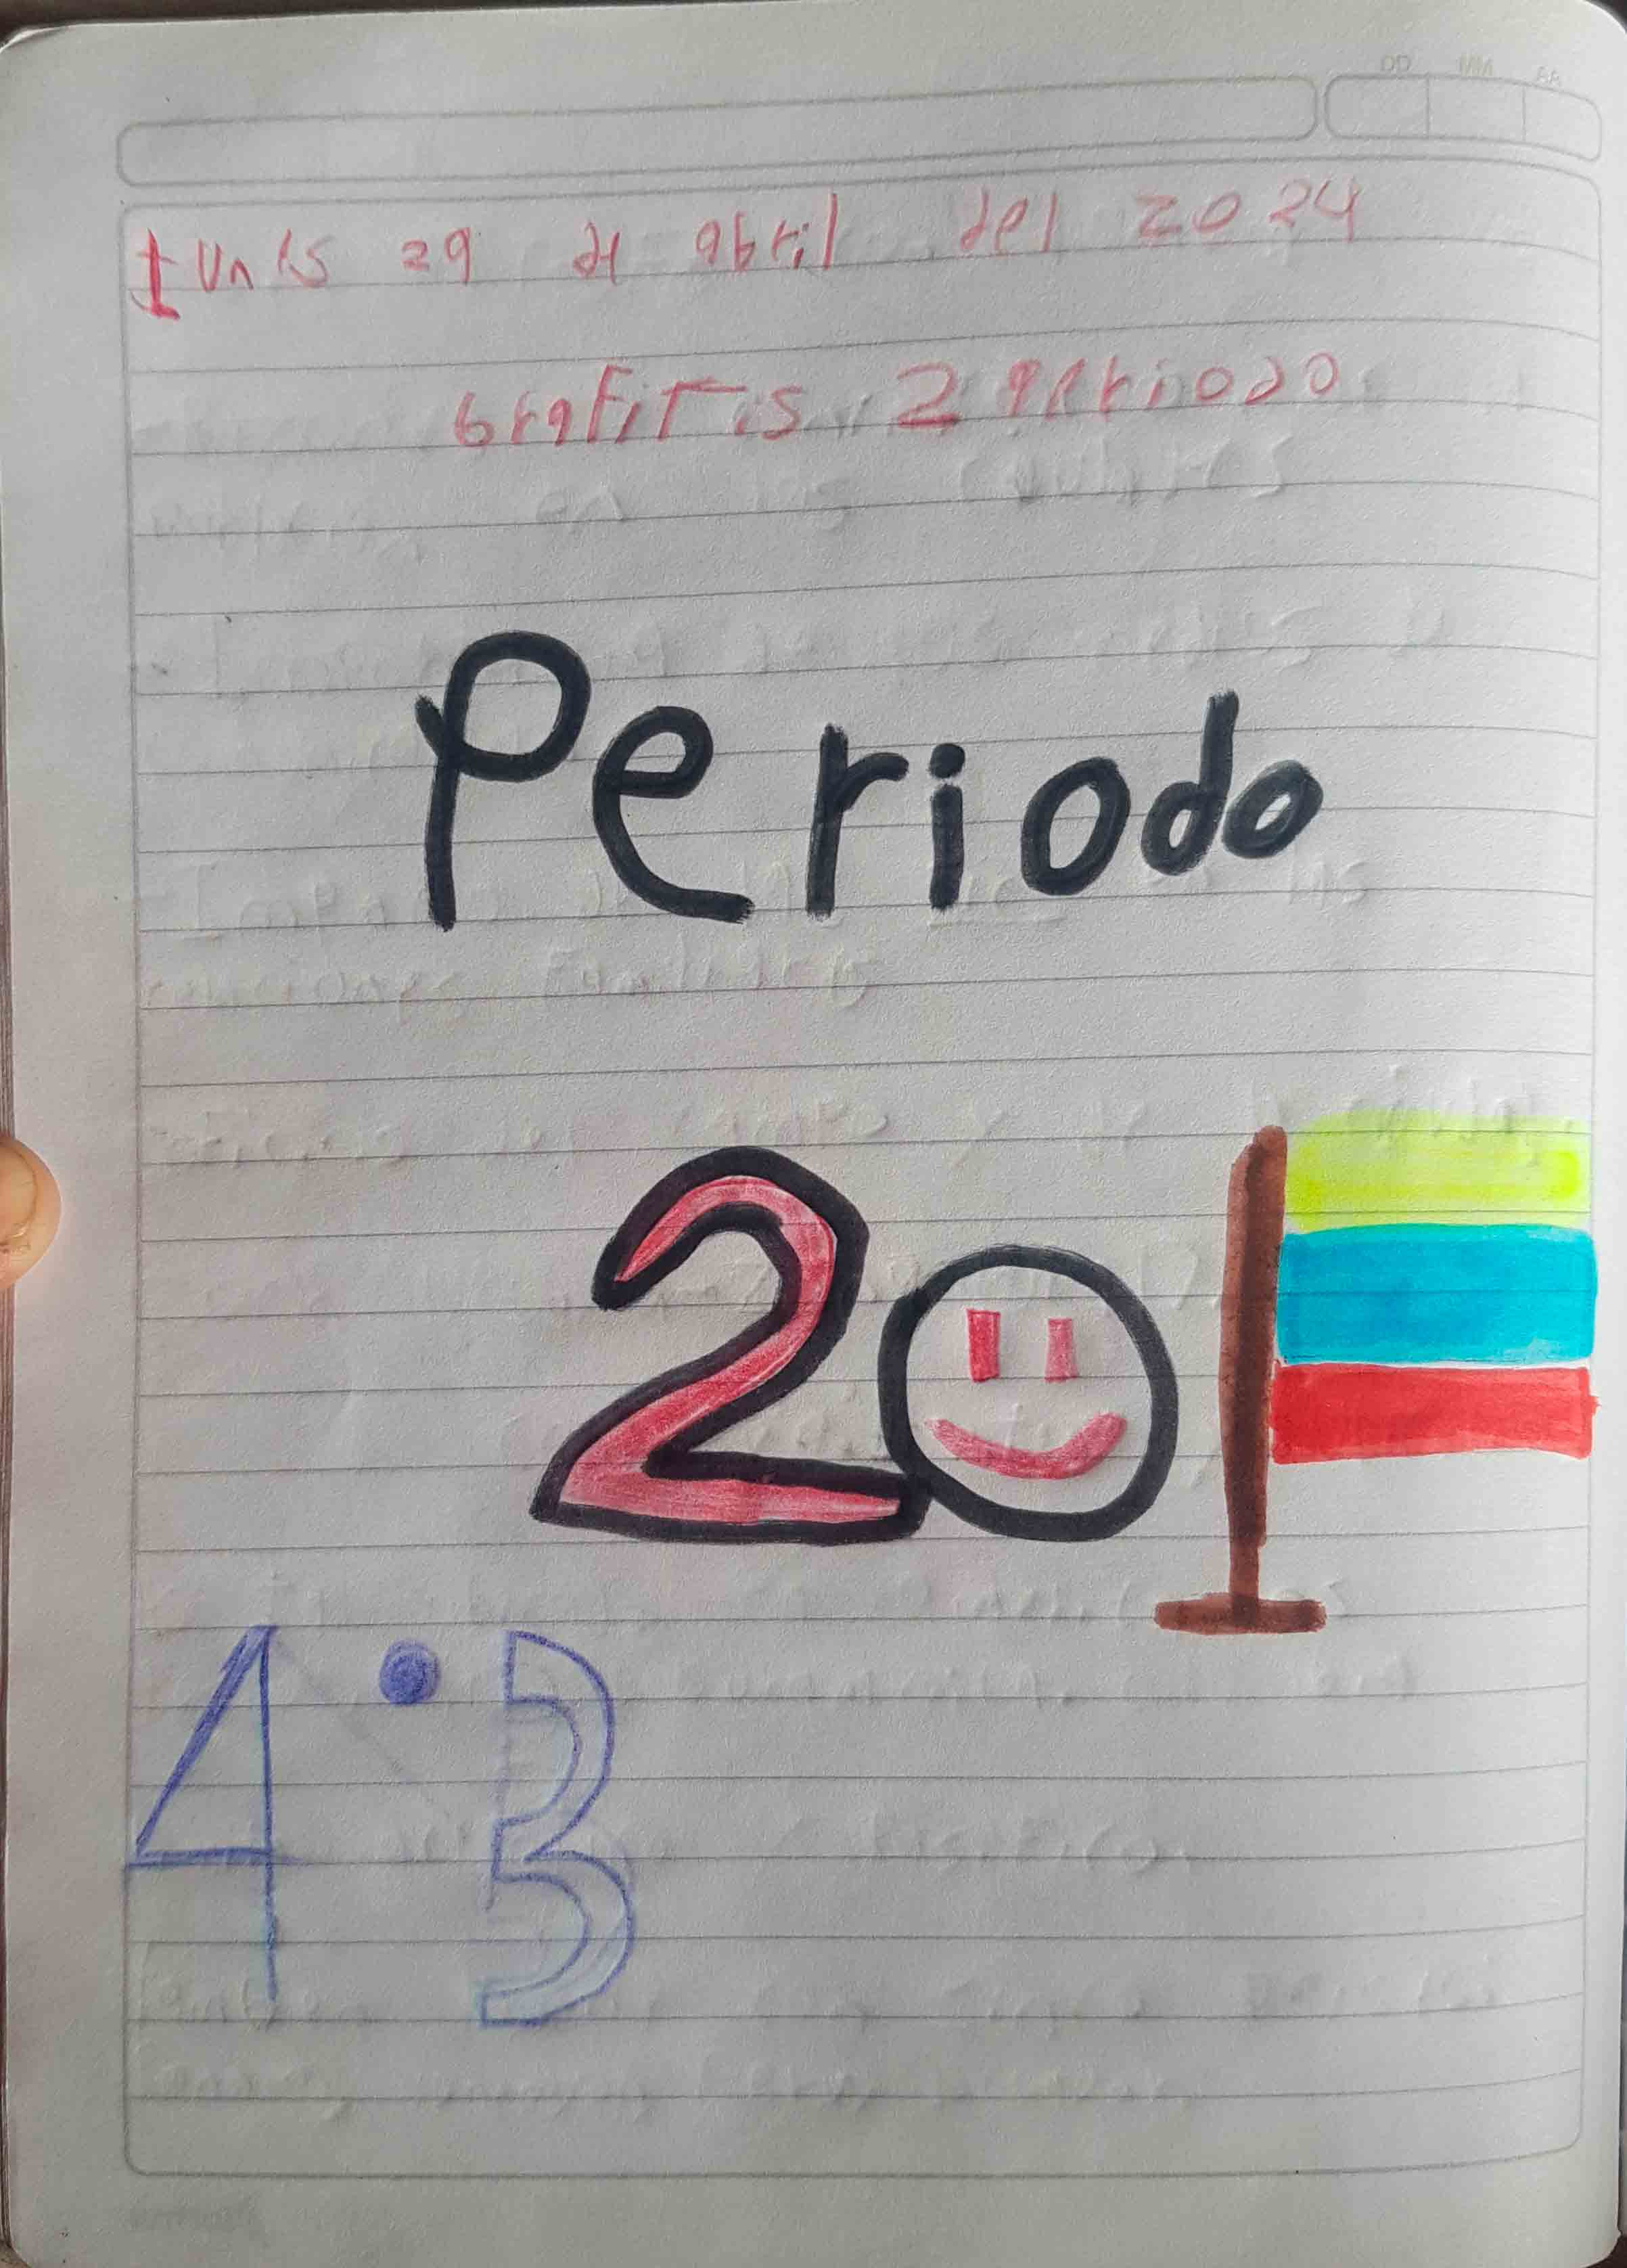 lunes 29 de abril del 2024
Grafitis 2 periodo
Periodo
20
4°3